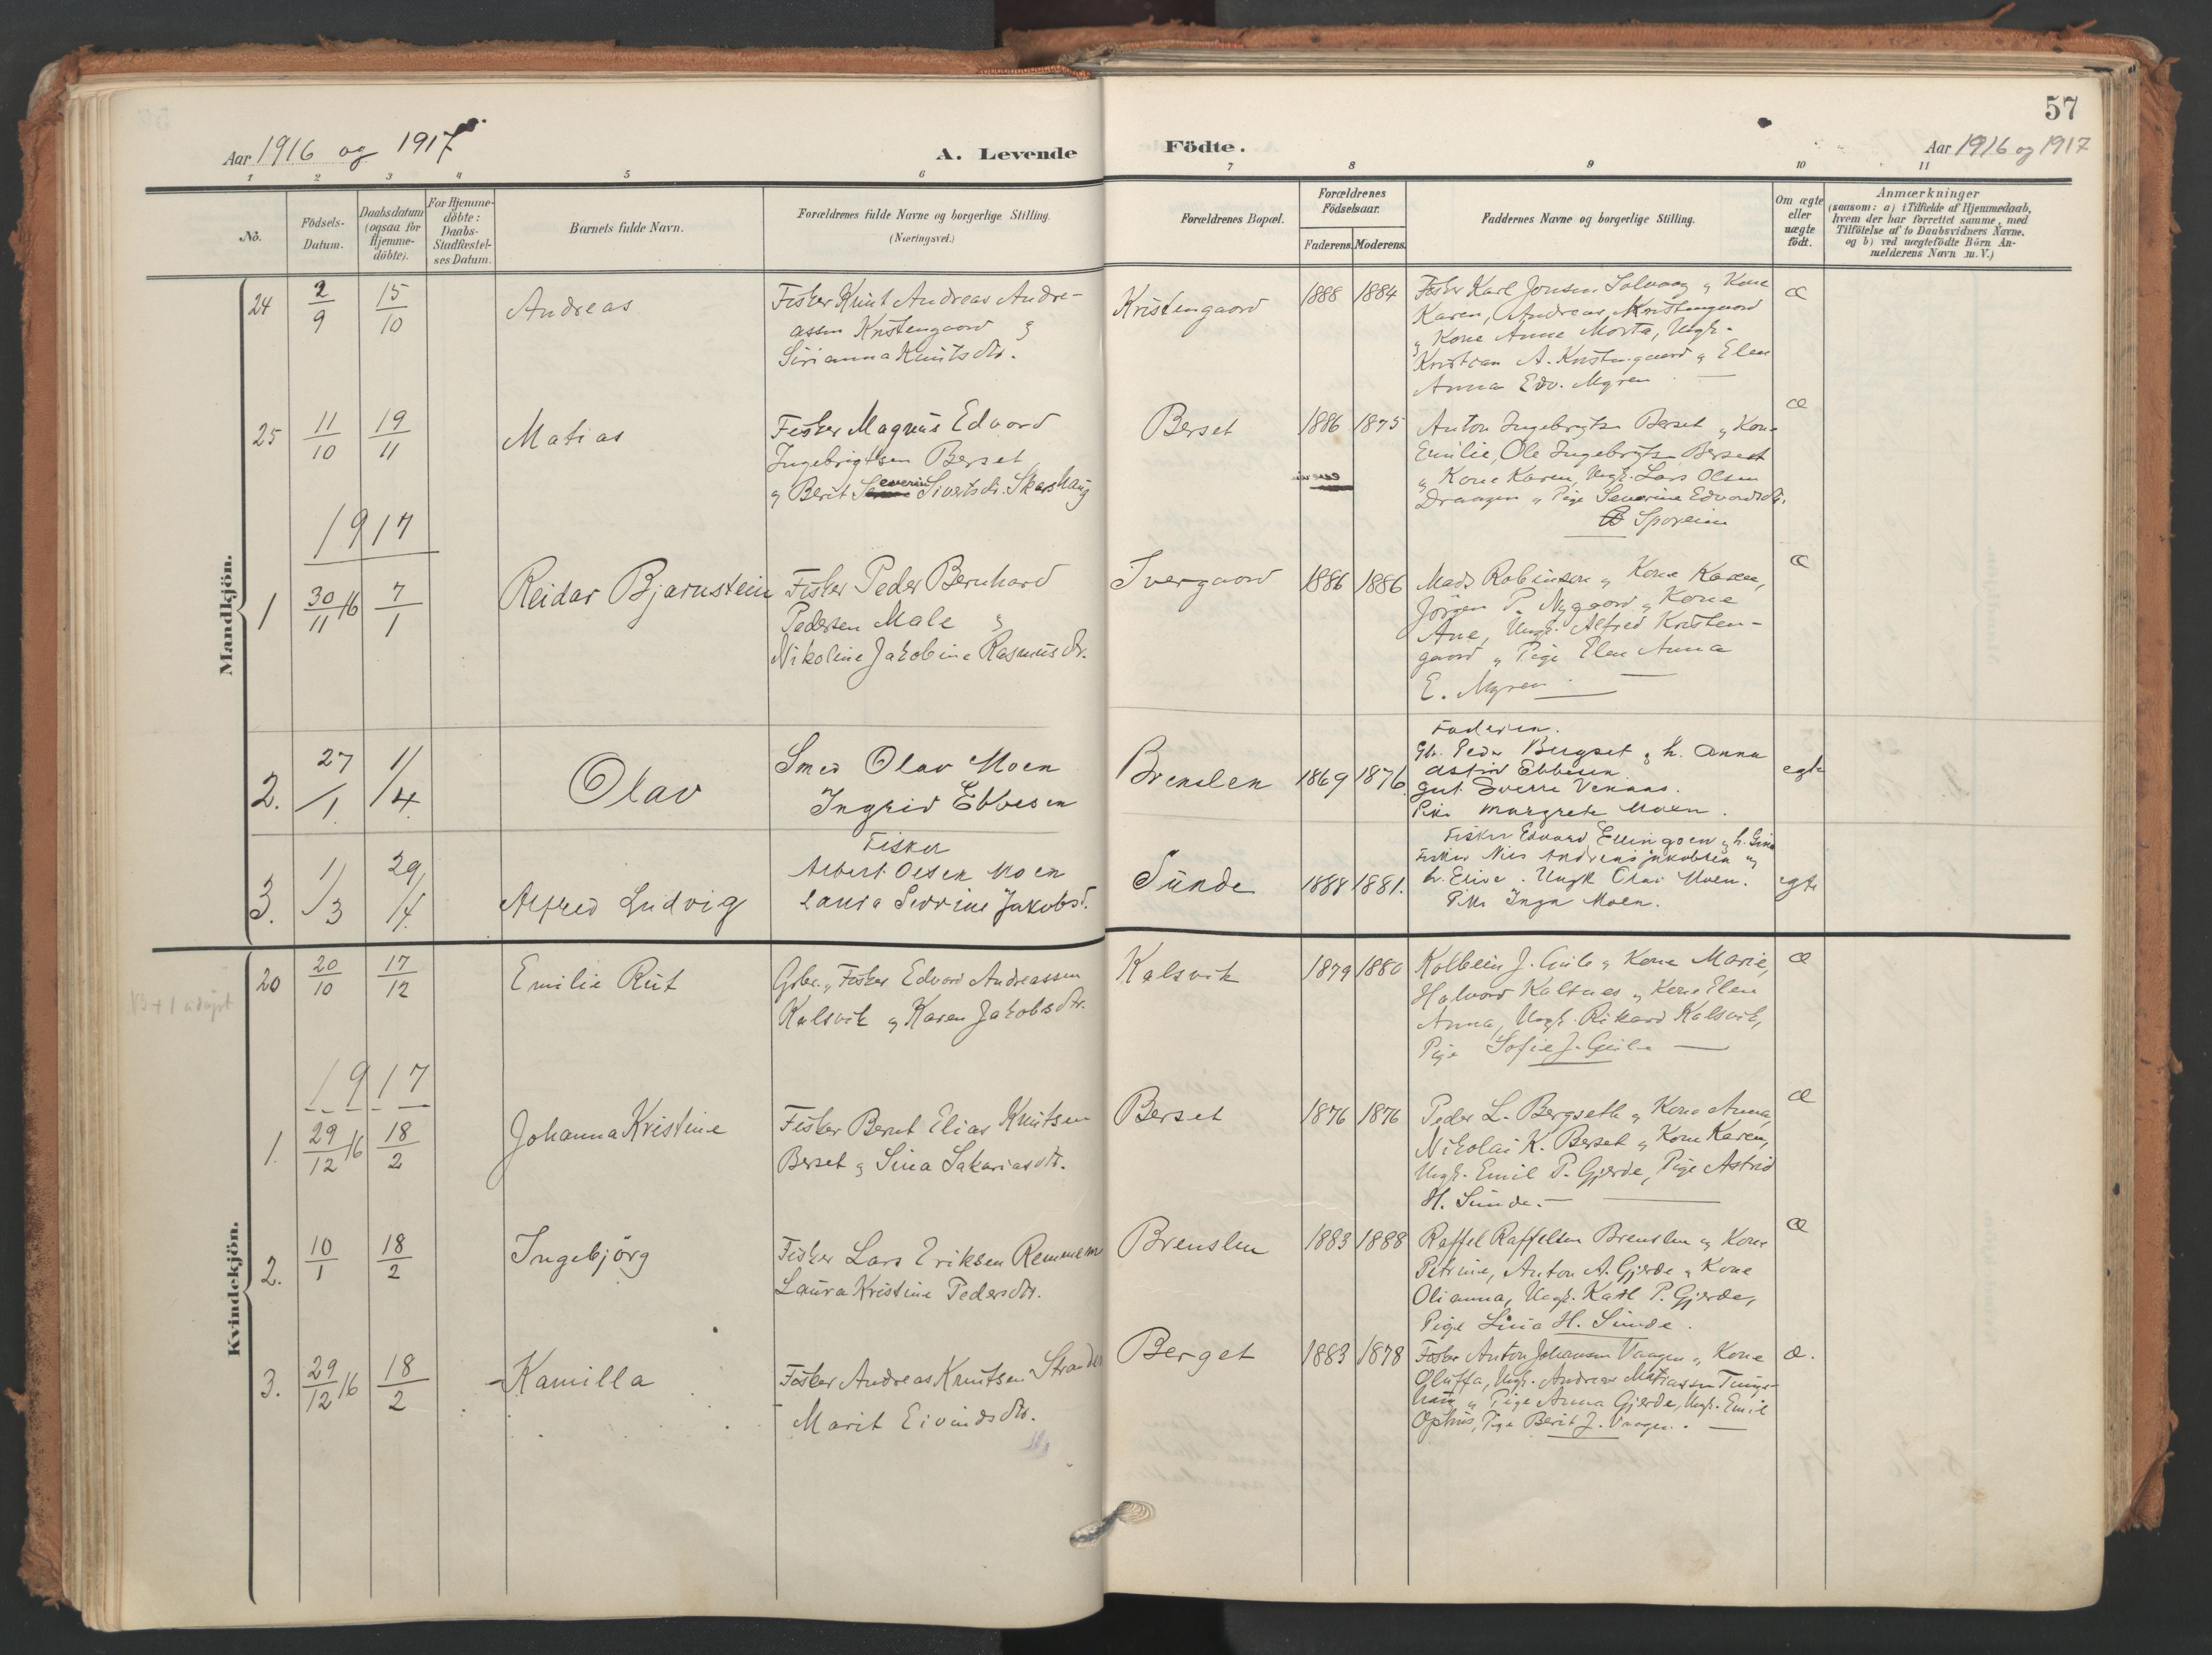 57
Aar 1916 og 1917
A. Levende
Födte.
Aar 1916 og 1917
1 2 3 4 5 6 7 8 9 10 11
No.
Födsels-
Datum.
Daabsdatum
(ogsaa for
Hjemme-
döbte).
For Hjemme-
döbte:
Daabs-
Stadfæstel-
ses Datum.
Barnets fulde Navn.
Forældrenes fulde Navne og borgerlige Stilling.
(Næringsvei.)
Forældrenes Bopæl.
Forældrenes
Födselsaar.
Faderens. Moderens.
Faddernes Navne og borgerlige Stilling.
Om ægte
eller
uægte
födt.
Anmærkninger
(saasom: a) i Tilfælde af Hjemmedaab,
hvem der har forrettet samme, med
Tilföielse af to Daabsvidners Navne,
og b) ved uægtefödte Börn An-
melderens Navn m. V.)
Mandkjön.
24 2/9 15/10 Andreas
Fisker Knut Andreas Andre-
assen Kristengaard &
Sirianna Knutsdtr.
Kristengaard 1888 1884
Fisker Karl Jonsen Solvaag & Kone
Karen, Andreas Kristengaard
& Kone Anne Marta, Ungk.
Kristian A. Kristengaard & Elen
Anna Edv. Myren
æ
25 11/10 19/11 Matias
Fisker Magnus Edvard
Ingebrigtsen Berset
& Berit Severine Sivertsdtr. Skarshaug
Berset 1886 1875
Anton Ingebrigtsen Berset & Kone
Emilie, Ole Ingebrigtsen Berset
& Kone Karen, Ungk. Lars Olsen
Draagen & Pige Severine Edvardsdtr.
Sporeim
æ
1917
1 30/11 16 7/1 Reidar Bjarnstein
Fisker Peder Bernhard
Pedersen Male &
Nikoline Jakobine Rasmusdtr.
Ivergaard 1886 1886
Mads Robinson & Kone Karen,
Jörgen P. Nygaard & Kone
Ane, Ungk. Alfred Kristen-
gaard & Pige Elen Anna
E. Myren
æ
2. 27/1 1/4 Olav
Smed Olav Moen
Ingrid Ebbesen
Brenslen 1869 1876.
Faderen.
Gbr. Peder Bergset & h. Anna
Astrid Ebbesen
Gut Sverre Venaas.
Pike Margrete Moen.
egte
3. 1/3 29/4 Alfred Ludvig
Fisker
Albert Olsen Moen
Laura Sevrine Jakobsd.
Sunde 1888 1881.
Fisker Edvard Ellingsen & h. Gina
Fisker Nils Andreas Jakobsen &
h. Elise. Ungk Olav Moen.
Pike Inga Moen.
egte
Kvindekjön.
20 20/10 17/12 Emilie Rut
Gbr. & Fisker Edvard Andreassen
Kalsvik & Karen Jakobsdtr.
Kalsvik 1879 1880
Kolbein J. & Kone Marie,
Halvard Kaltnes & Kone Elen
Anna, Ungk. Rikard Kalsvik,
Pige Sofie J.
æ
1917
1. 29/12 16 18/2 Johanna Kristine
Fisker Bernt Elias Knutsen
Berset & Sina Sakariasdtr.
Berset 1876 1876
Peder L. Bergseth & Kone Anna,
Nikolai K. Berset & Kone Karen,
Ungk. Emil P. Gjerde, Pige Astrid
H. Sunde.
æ
2. 10/1 18/2 Ingebjörg
Fisker Lars Eriksen Remmem
Laura Kristine Pedersdtr.
Brenslen 1883 1888
Raffel Raffelsen Brenslen & Kone
Petrine, Anton A. Gjerde & Kone
Olianna, Ungk. Karl P. Gjerde,
Pige Lina H. Sunde.
æ
3. 29/12 16 18/2 Kamilla
Fisker Andreas Knutsen Stranden
Marit Eivindsdtr.
Berget 1883 1878
Fisker Anton Johansen Vaagen & Kone
Oluffa, Ungk. Andreas Matiassen Tungs-
haug & Pige Anna Gjerde, Ungk. Emil
Ophus, Pige Berit J. Vaagen.
æ.